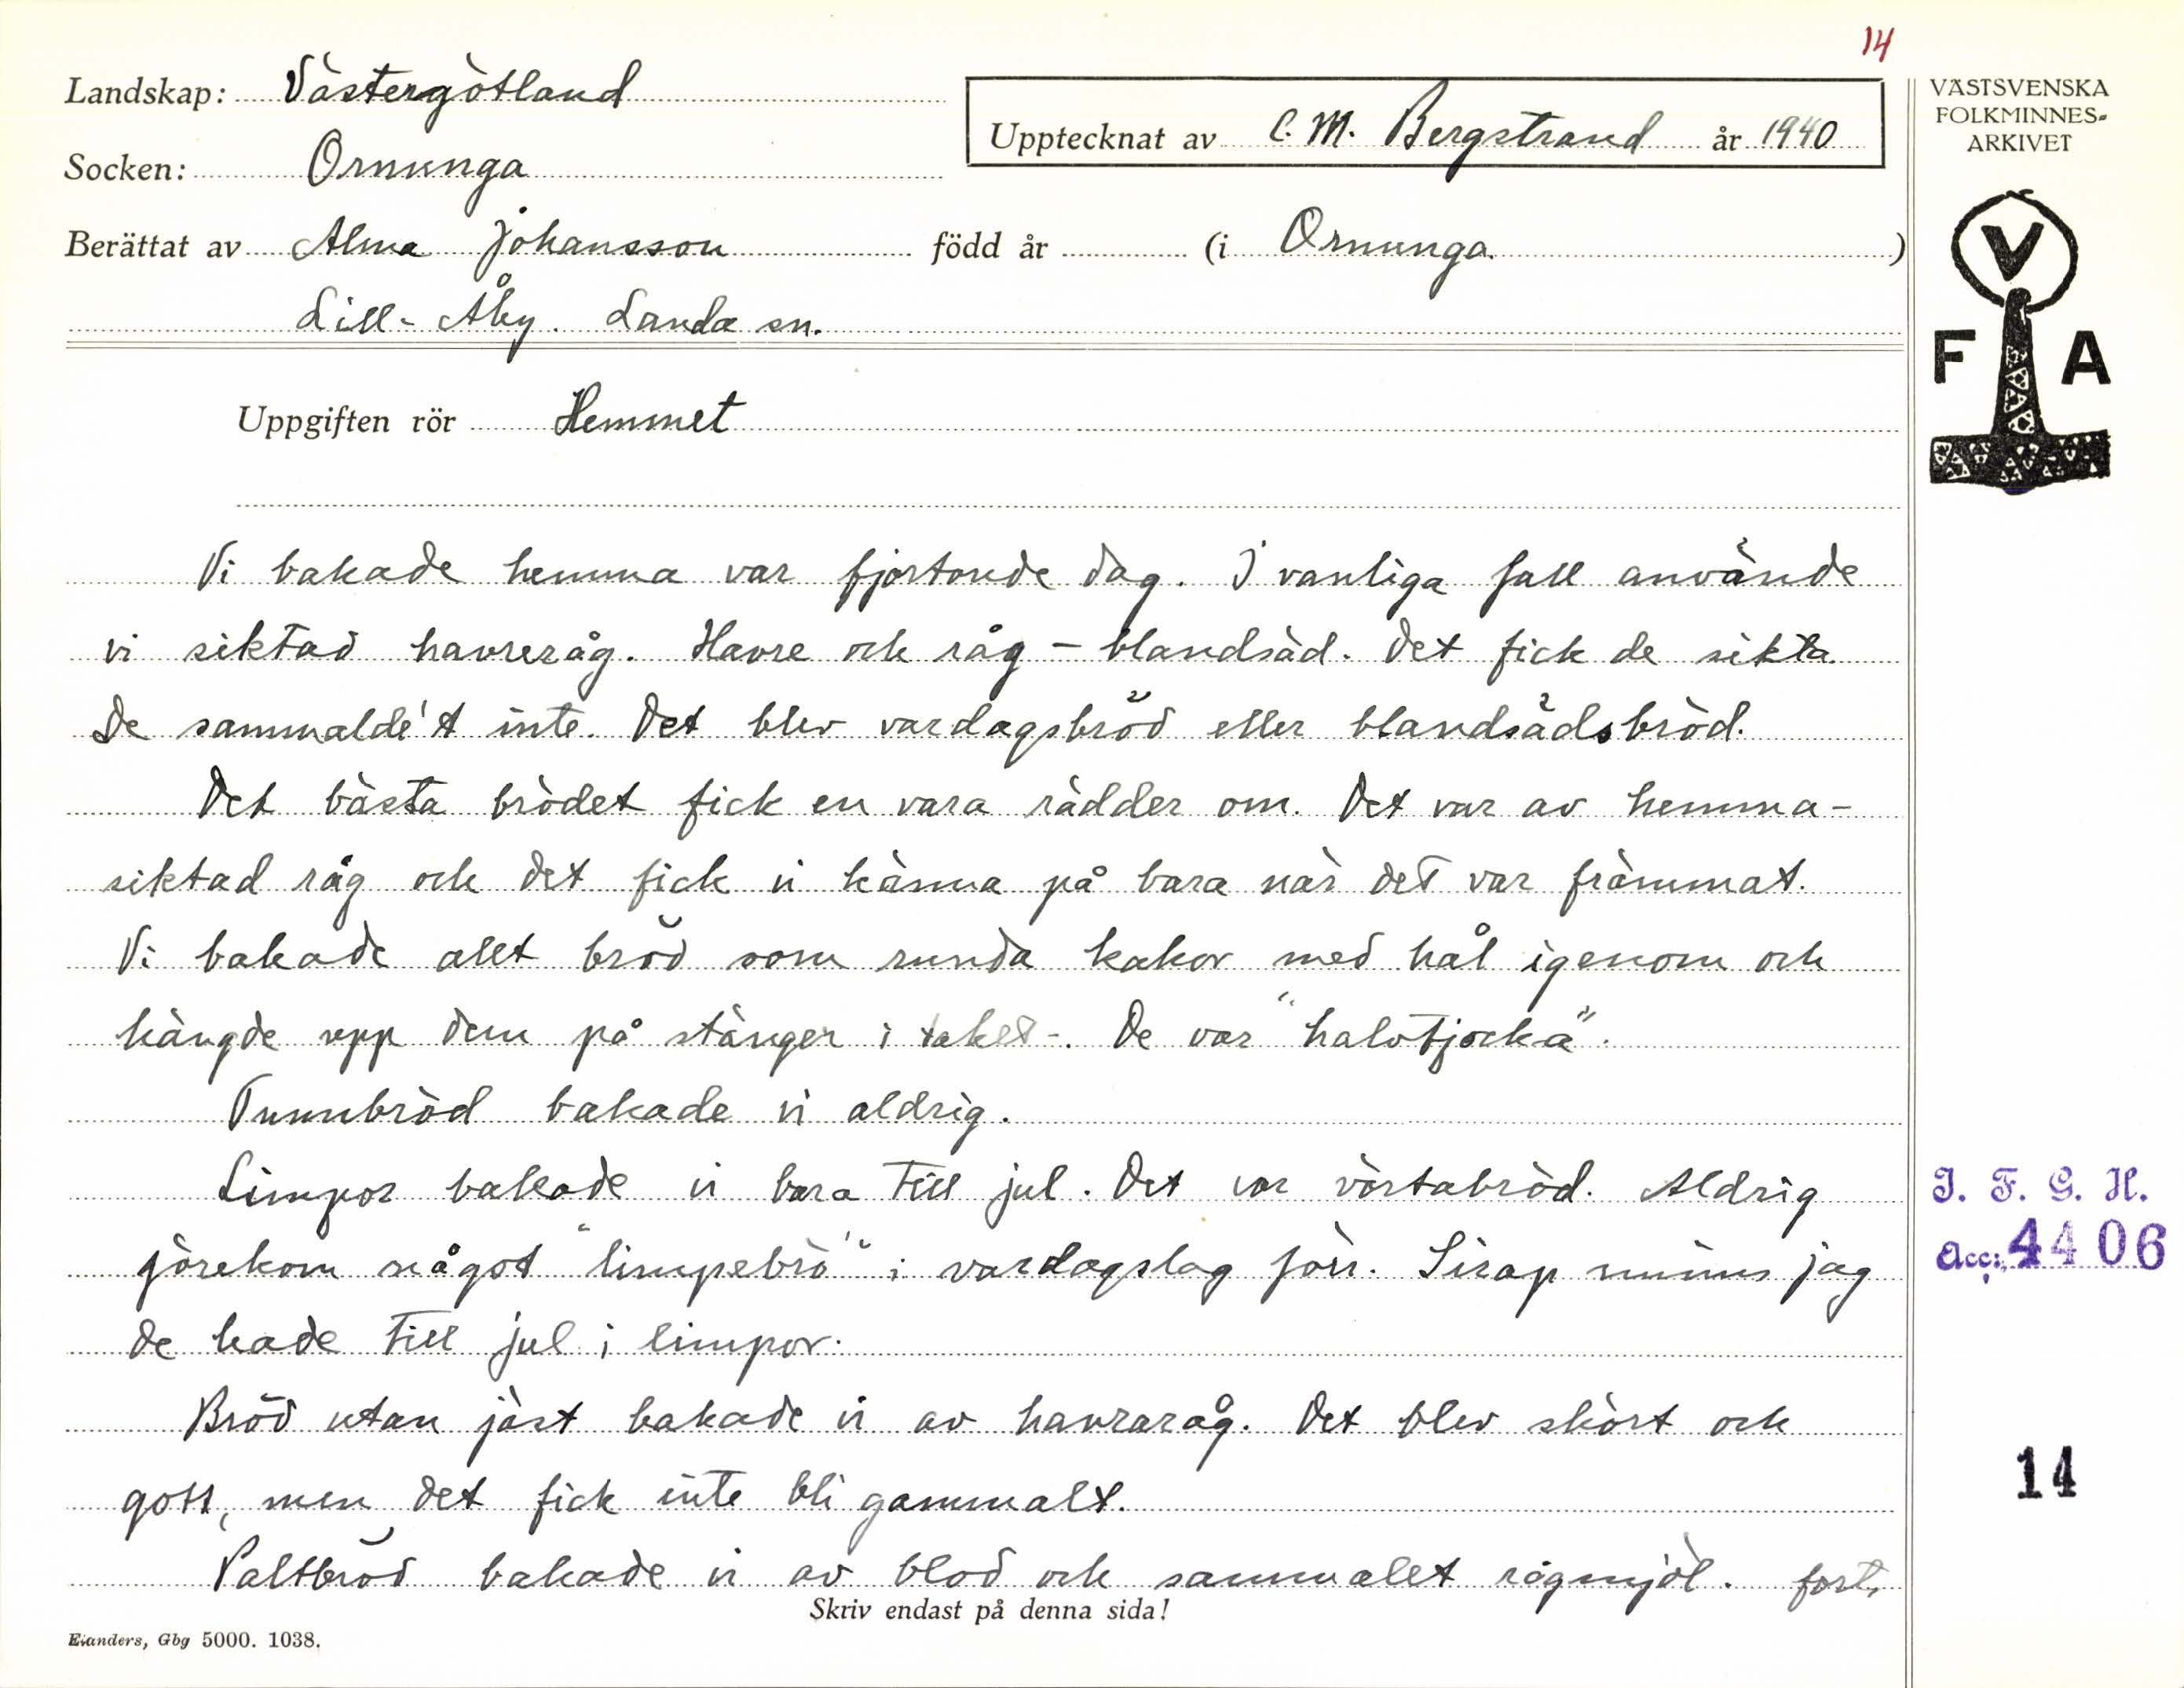 14
Landskap: Västergötland
Upptecknat av C. M. Bergstrand år 1940
Socken: Ornunga
Berättat av Alma Johansson född år (i Ornunga. )
Lill-Åby. Landa sn.
Uppgiften rör Hemmet
Vi bakade hemma var fjortonde dag. I vanliga fall använde
vi siktad havreråg. Havre och råg - blandsäd. Det fick de sikta.
De sammalde't inte. Det blev vardagsbröd eller blandsädsbröd.
Det bästa brödet fick en vara rädder om. Det var av hemma-
siktad råg och det fick vi känna på bara när det var främmat.
Vi bakade allt bröd som runda kakor med hål igenom och
hängde upp dem på stänger i taket-. De var "halvtjocka".
Tunnbröd bakade vi aldrig.
Limpor bakade vi bara till jul. Det var vörtabröd. Aldrig
förekom något "limpebrö'" i vardagslag förr. Sirap minns jag
de hade till jul i limpor.
Bröd utan jäst bakade vi av havraråg. Det blev skört och
gott, men det fick inte bli gammalt.
Paltbröd bakade vi av blod och sammalet rågmjöl. forts.
Skriv endast på denna sida!
Elanders, Gbg 5000. 1038.
VÄSTSVENSKA
FOLKMINNES-
ARKIVET
V
F A
I. F. G. H.
Acc: 4406
14